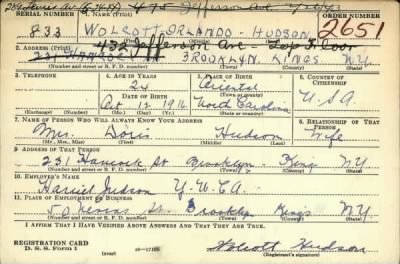 284 Lewis Av. (6-24-47) 475 Jefferson Ave
SERIAL NUMBER 1. NAME (Print) ORDER NUMBER
833 WOLCOTT ORLANDO HUDSON 2651
(First) (Middle) (Last)
432 Jefferson Ave - Top Floor
2. ADDRESS (Print)
231 HANCOCK ST BROOKLYN KINGS N.Y.
(Number and street or R. F. D. number) (Town) (County) (State)
3. TELEPHONE 4. AGE IN YEARS 5. PLACE OF BIRTH 6. COUNTRY OF CITIZENSHIP
24 Oriental
DATE OF BIRTH (Town or county)
Oct 12 1916 North Carolina U.S.A
(Exchange) (Number) (Mo.) (Day) (Yr.) (State or country)
7. NAME OF PERSON WHO WILL ALWAYS KNOW YOUR ADDRESS 8. RELATIONSHIP OF THAT PERSON
Mrs. Doris Hudson Wife
(Mr., Mrs., Miss) (First) (Middle) (Last)
9. ADDRESS OF THAT PERSON
231 Hancock St Brooklyn Kings N.Y.
(Number and street or R. F. D. number) (Town) (County) (State)
10. EMPLOYER'S NAME
Harriet Judson Y.W.C.A.
11. PLACE OF EMPLOYMENT OR BUSINESS
50 Nevins St. Brooklyn Kings N.Y.
(Number and street or R. F. D. number) (Town) (County) (State)
I AFFIRM THAT I HAVE VERIFIED ABOVE ANSWERS AND THAT THEY ARE TRUE.
REGISTRATION CARD
D. S. S. Form 1 16-17105 Wolcott Hudson
(Registrant's signature)